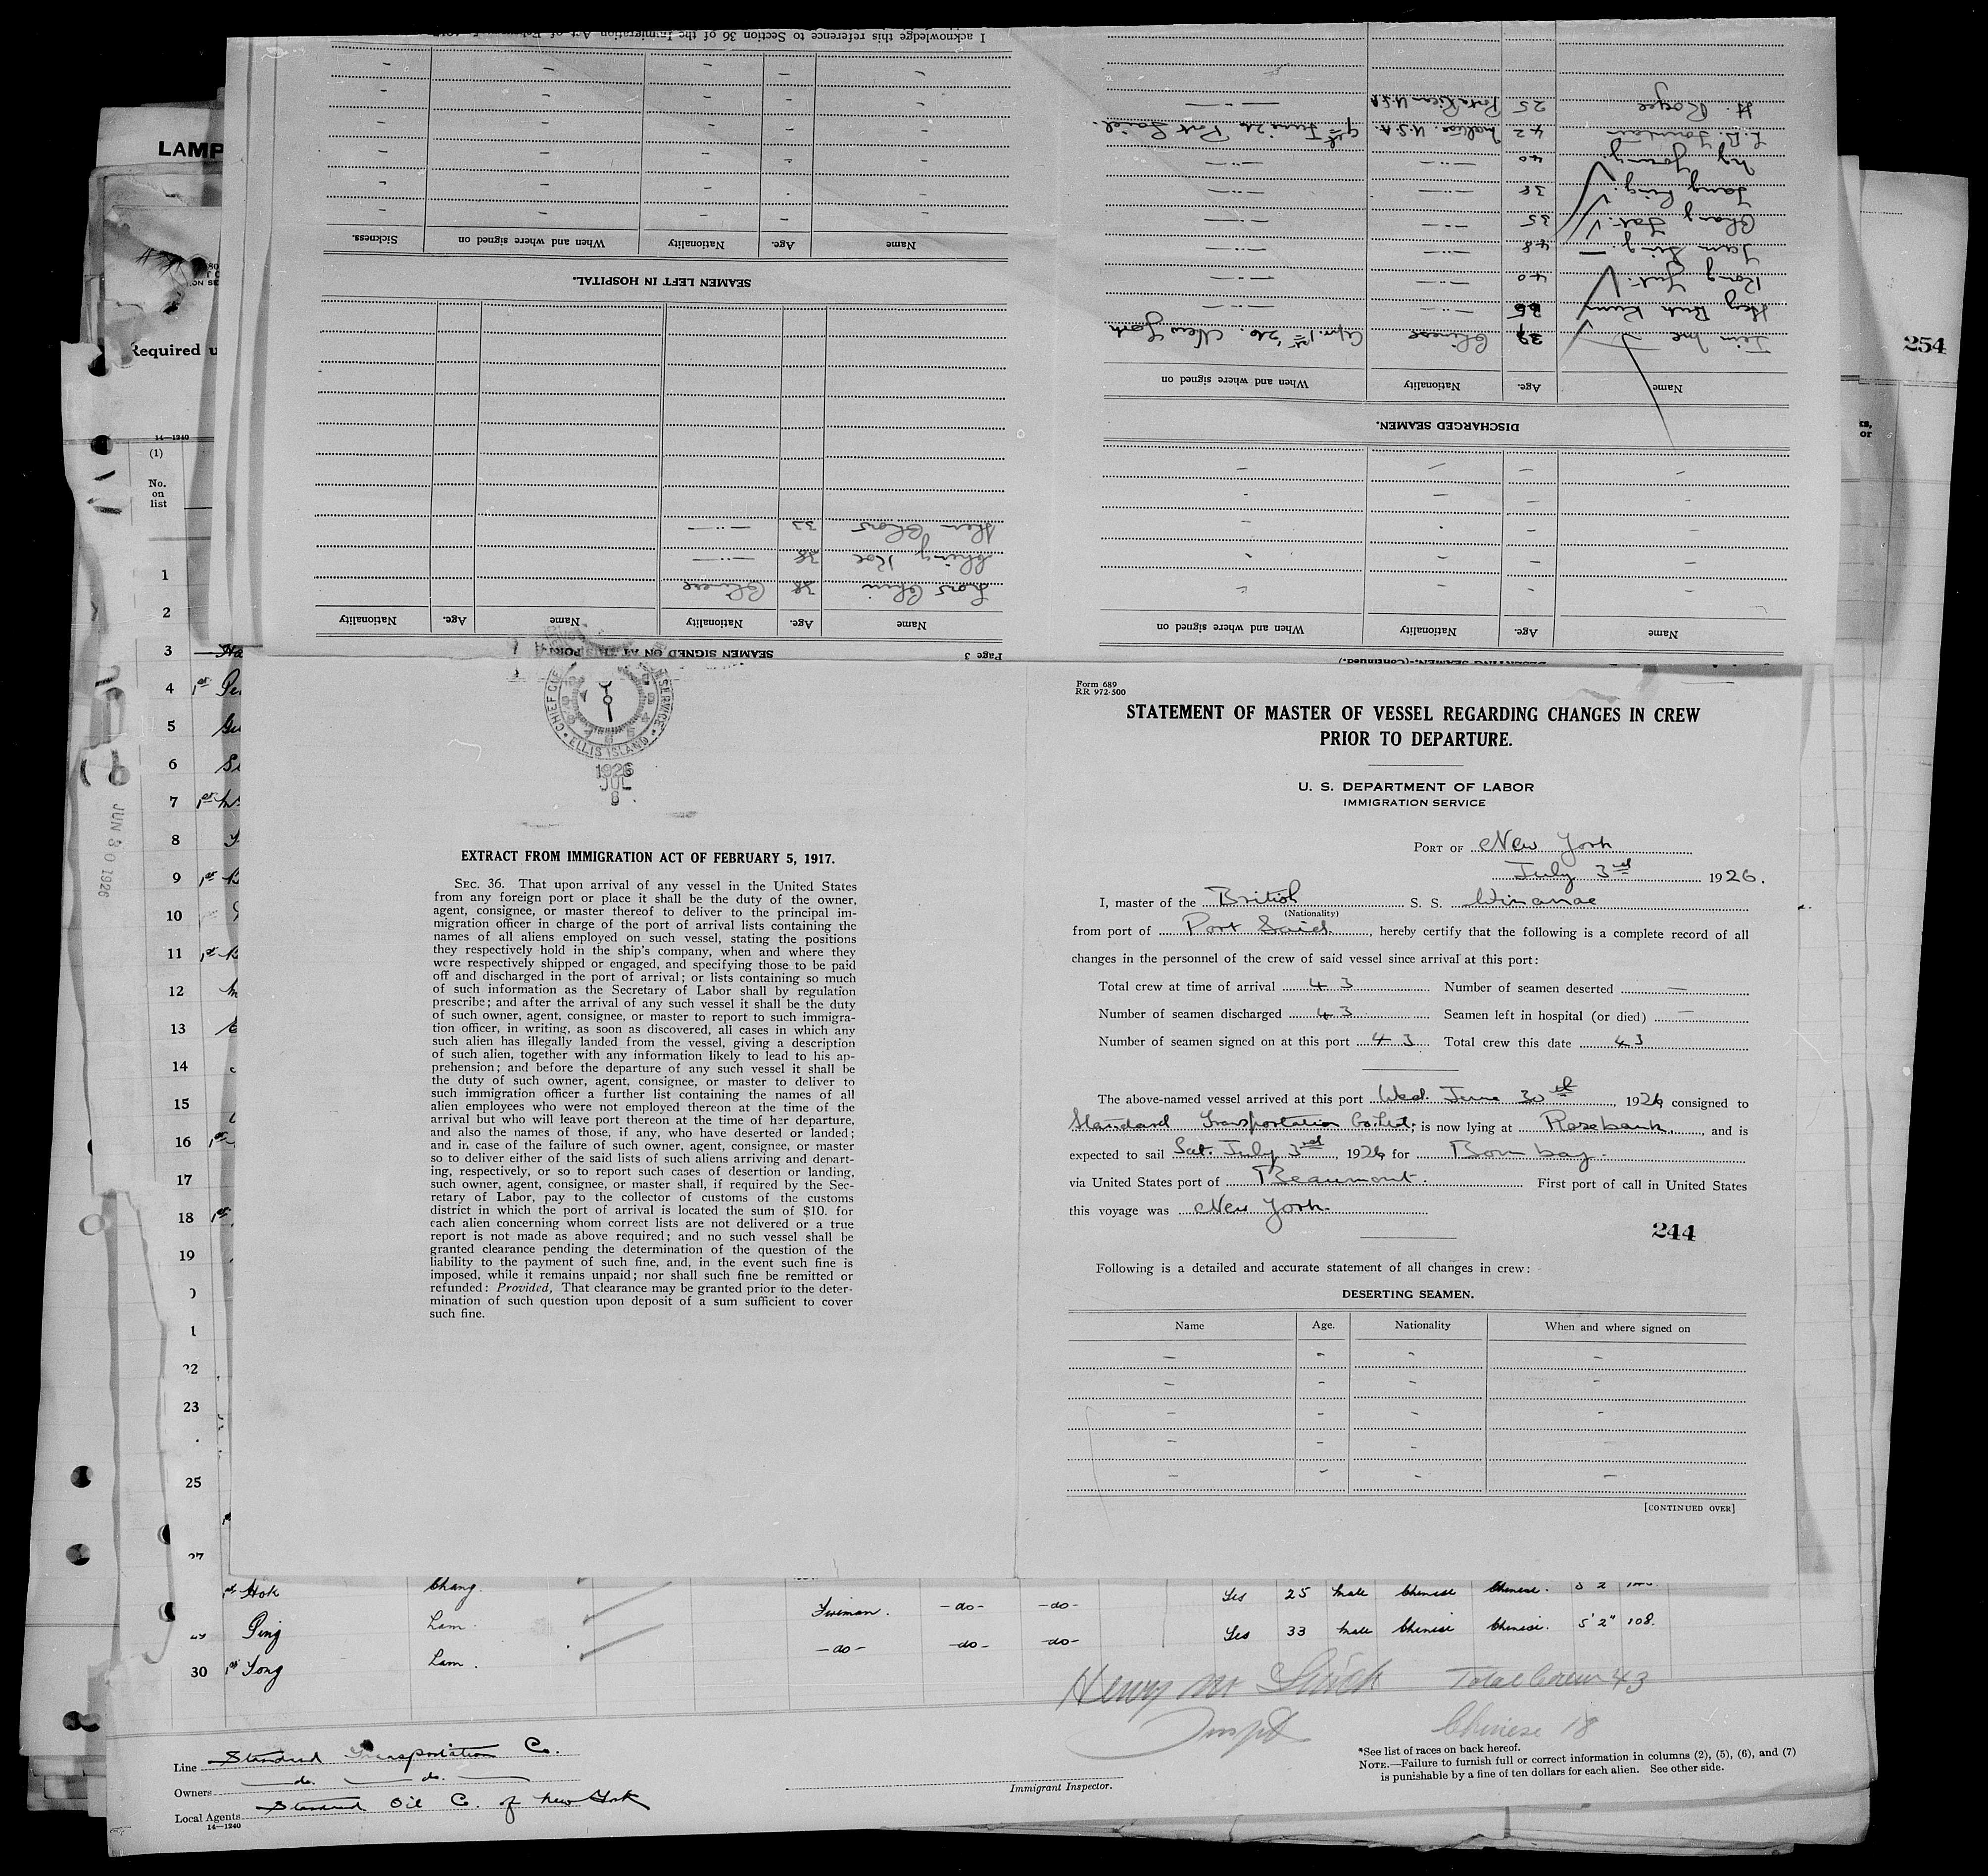 I acknowledge this reference to Section 36 of the Immigration Act of
Name Age. Nationality When and where signed on Sickness.
SEAMEN LEFT IN HOSPITAL.
Hen Chow 33 —"—
Ching Koe 38 —"—
38 Chinese
Name Age. Nationality Name Age. Nationality
Page 3 SEAMEN SIGNED ON AT THIS PORT.
H. 25 Porto Rican U.S.A. —"—
L.B. 42 U.S.A. 9th June 26 Port Said.
Ny Young. 40 —"— —"—
38 —"— —"—
Chang Fat. 35 —"— —"—
48 —"— —"—
40 —"— —"—
36 —"— —"—
39 Chinese Apr. 1st '26. New York
Name Age. Nationality When and where signed on
DISCHARGED SEAMEN.
Name Age. Nationality When and where signed on
DESERTING SEAMEN.-(Continued.)
LAMP
Required u
254
14—1240
(1)
No.
on
list
1
2
3
4 1st
5
6
7 1st
8
9 1st
10
11 1st
12
13
14
15
16 1st
17
18 1st
19
22
23
25
27
JUN 30 1926
CHIEF CLE
SERVICE
ELLIS ISLAND
1926
JUL
8
EXTRACT FROM IMMIGRATION ACT OF FEBRUARY 5, 1917.
SEC. 36. That upon arrival of any vessel in the United States
from any foreign port or place it shall be the duty of the owner,
agent, consignee, or master thereof to deliver to the principal im-
migration officer in charge of the port of arrival lists containing the
names of all aliens employed on such vessel, stating the positions
they respectively hold in the ship's company, when and where they
were respectively shipped or engaged, and specifying those to be paid
off and discharged in the port of arrival; or lists containing so much
of such information as the Secretary of Labor shall by regulation
prescribe; and after the arrival of any such vessel it shall be the duty
of such owner, agent, consignee, or master to report to such immigra-
tion officer, in writing, as soon as discovered, all cases in which any
such alien has illegally landed from the vessel, giving a description
of such alien, together with any information likely to lead to his ap-
prehension; and before the departure of any such vessel it shall be
the duty of such owner, agent, consignee, or master to deliver to
such immigration officer a further list containing the names of all
alien employees who were not employed thereon at the time of the
arrival but who will leave port thereon at the time of her departure,
and also the names of those, if any, who have deserted or landed;
and in case of the failure of such owner, agent, consignee, or master
so to deliver either of the said lists of such aliens arriving and depart-
ing, respectively, or so to report such cases of desertion or landing,
such owner, agent, consignee, or master shall, if required by the Sec-
retary of Labor, pay to the collector of customs of the customs
district in which the port of arrival is located the sum of $10. for
each alien concerning whom correct lists are not delivered or a true
report is not made as above required; and no such vessel shall be
granted clearance pending the determination of the question of the
liability to the payment of such fine, and, in the event such fine is
imposed, while it remains unpaid; nor shall such fine be remitted or
refunded: Provided, That clearance may be granted prior to the deter-
mination of such question upon deposit of a sum sufficient to cover
such fine.
Form 689
RR 972-500
STATEMENT OF MASTER OF VESSEL REGARDING CHANGES IN CREW
PRIOR TO DEPARTURE.
U. S. DEPARTMENT OF LABOR
IMMIGRATION SERVICE
PORT OF New York
July 3rd 1926.
I, master of the British S. S. Winanae
(Nationality)
from port of Port Said, hereby certify that the following is a complete record of all
changes in the personnel of the crew of said vessel since arrival at this port:
Total crew at time of arrival 43 Number of seamen deserted —
Number of seamen discharged 43 Seamen left in hospital (or died) —
Number of seamen signed on at this port 43 Total crew this date 43
The above-named vessel arrived at this port Wed. June 30th, 1926 consigned to
Standard Transportation Co. Ltd; is now lying at Rosebank, and is
expected to sail Sat. July 3rd, 1926 for Bombay.
via United States port of Beaumont. First port of call in United States
this voyage was New York.
244
Following is a detailed and accurate statement of all changes in crew:
DESERTING SEAMEN.
Name Age. Nationality When and where signed on
[CONTINUED OVER]
1st Hok Chang. Fireman. —do— —do— Yes 25 Male Chinese Chinese. 5 2
Ping Lam. —do— —do— —do— Yes 33 Male Chinese Chinese. 5' 2" 108.
30 1st Yong Lam.
Total Crew 43
Chinese 18
Line Standard Transportation Co.
Owners —do. —do. —
Local Agents Standard Oil Co. of New York
14—1240
Immigrant Inspector.
*See list of races on back hereof.
NOTE.—Failure to furnish full or correct information in columns (2), (5), (6), and (7)
is punishable by a fine of ten dollars for each alien. See other side.